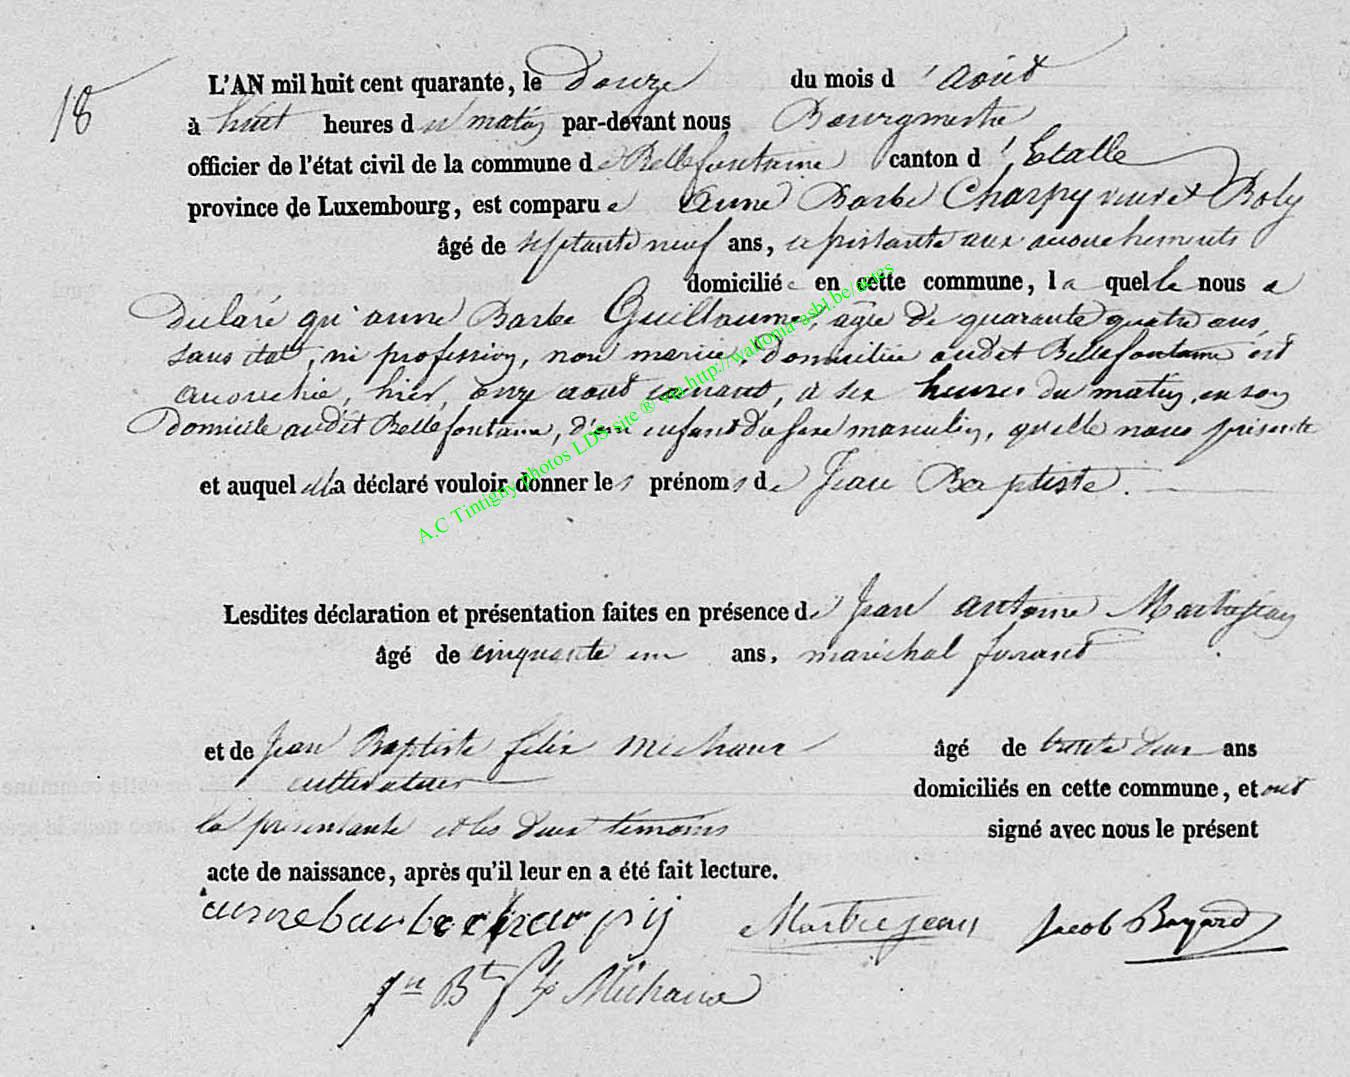 18
L'AN mil huit cent quarante, le Douze du mois d'août
à huit heures du matin par-devant nous Bourgmestre
officier de l'état civil de la commune de Bellefontaine canton d'Etalle
province de Luxembourg, est comparue Anne Barbe Charpy veuve Roly
âgé de septante neuf ans, assistante aux accouchements
domiciliée en cette commune, laquelle nous a
Déclaré qu'anne Barbe Guillaume, agée De quarante quatre ans,
sans état, ni profession, non mariée, Domiciliée audit Bellefontaine est
accouchée, hier, onze août courant, à six heures du matin, en son
Domicile audit Bellefontaine, D'un enfant Du sexe masculin, qu'elle nous présente
et auquel elle a déclaré vouloir donner les prénoms de Jean Baptiste.
Lesdites déclaration et présentation faites en présence de Jean antoine Martinjean
âgé de cinquante un ans, maréchal ferant
et de Jean Baptiste félix Michaux âgé de trente Deux ans
cultivateur domiciliés en cette commune, et ont
la présentante et les Deux témoins signé avec nous le présent
acte de naissance, après qu'il leur en a été fait lecture.
annebarbecharpij Jacob Bayard
Jn Bte Michaux
A.C Tintigny photos LDS site ® via http://wallonia-asbl.be/actes